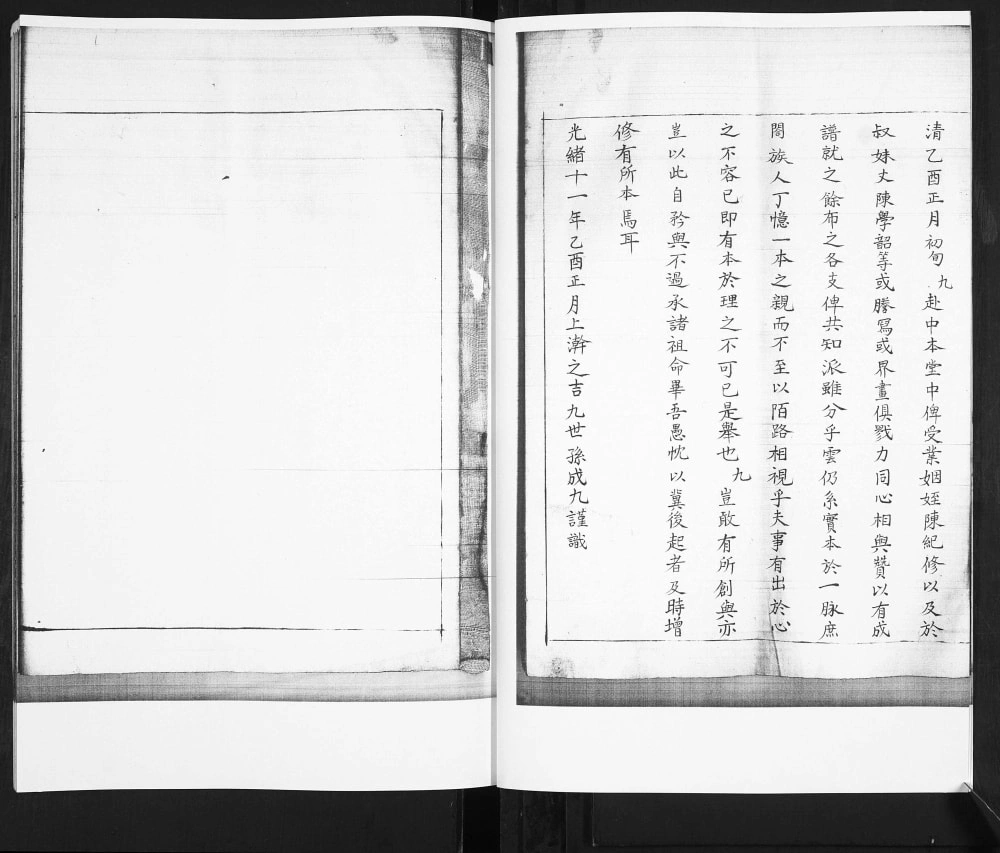 清乙酉正月初旬九赴中本堂中俾受業姻姪陳紀修以及於
叔妹丈陳學韶等或謄寫或界畫俱戮力同心相與贊以有成
譜就之餘布之各支俾共知派雖分乎雲仍系實本於一脉庶
閤族人丁憶一本之親而不至以陌路相視乎夫事有出於心
之不容已即有本於理之不可已是舉也九豈敢有所創與亦
豈以此自矜與不過承諸祖命畢吾愚忱以冀後起者及時增
修有所本焉耳
光緒十一年乙酉正月上澣之吉九世孫成九謹識